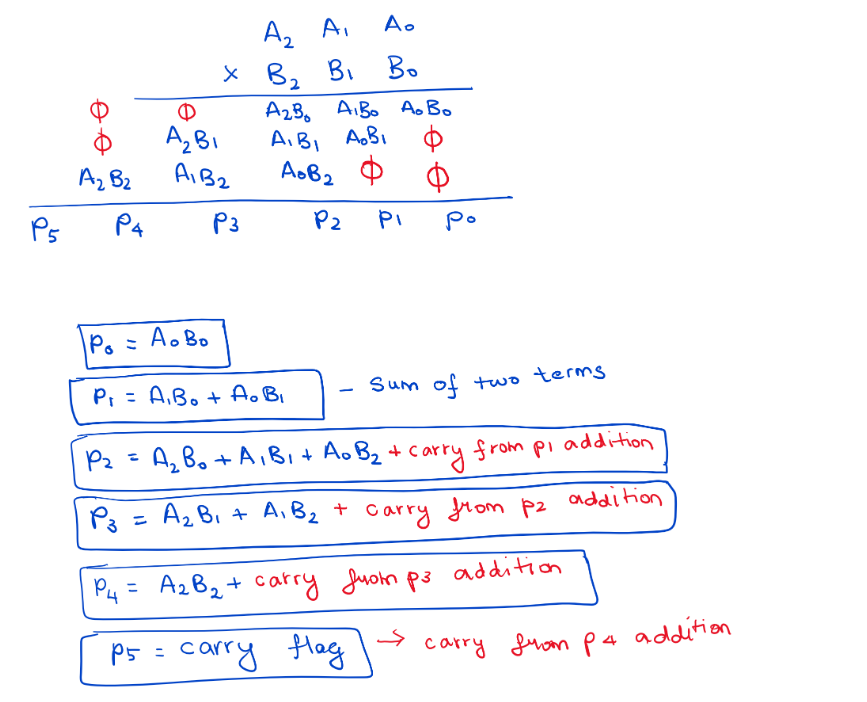 A₂ A₁ A₀
× B₂ B₁ B₀
Φ Φ A₂B₀ A₁B₀ A₀B₀
Φ A₂B₁ A₁B₁ A₀B₁ Φ
A₂B₂ A₁B₂ A₀B₂ Φ Φ
P₅ P₄ P₃ P₂ P₁ P₀
P₀ = A₀B₀
P₁ = A₁B₀ + A₀B₁ - sum of two terms
P₂ = A₂B₀ + A₁B₁ + A₀B₂ + carry from p1 addition
P₃ = A₂B₁ + A₁B₂ + carry from p2 addition
P₄ = A₂B₂ + carry from p3 addition
P5 = carry flag → carry from p4 addition